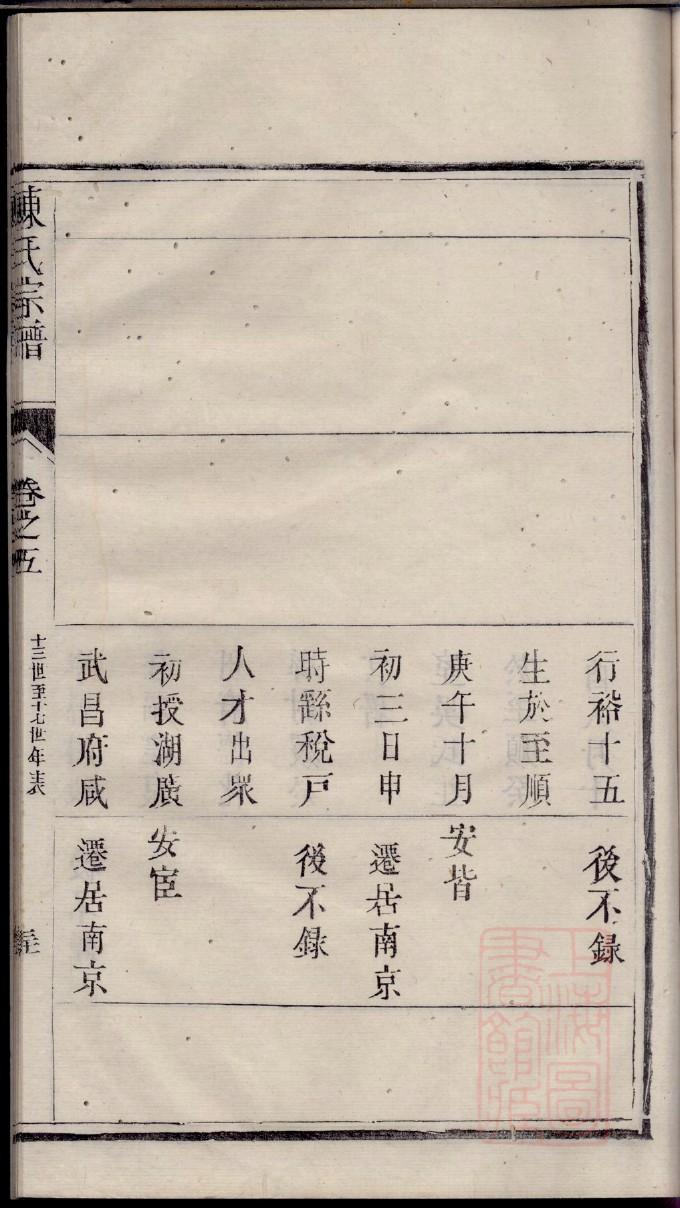 行裕十五
生於至順
庚午十月
初三日申
時繇稅戸
人才出衆
初授湖廣
武昌府咸
後不録
安皆
遷居南京
後不録
安宦
遷居南京
陳氏宗譜
卷之五
十三世至十七世年表
上海圖
書館藏